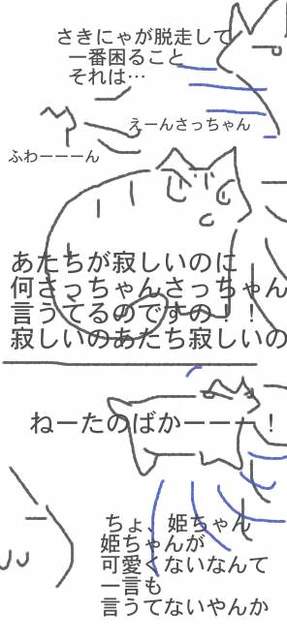 さきにゃが脱走して
一番困ること
それは…
えーんさっちゃん
ふわーーーん
あたちが寂しいのに
何さっちゃんさっちゃん
言うてるのですの！！
寂しいのあたち寂しいの
ねーたのばかーーー！
ちょ、姫ちゃん
姫ちゃんが
可愛くないなんて
一言も
言うてないやんか